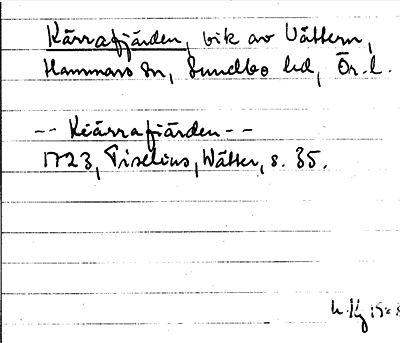 Kärrafjärden, vik av Vättern,
Hammars sn, Sundbo hd, Ör. l.
-- Kiärrafiärden --
1723, Tiselius, Wätter, s. 35.